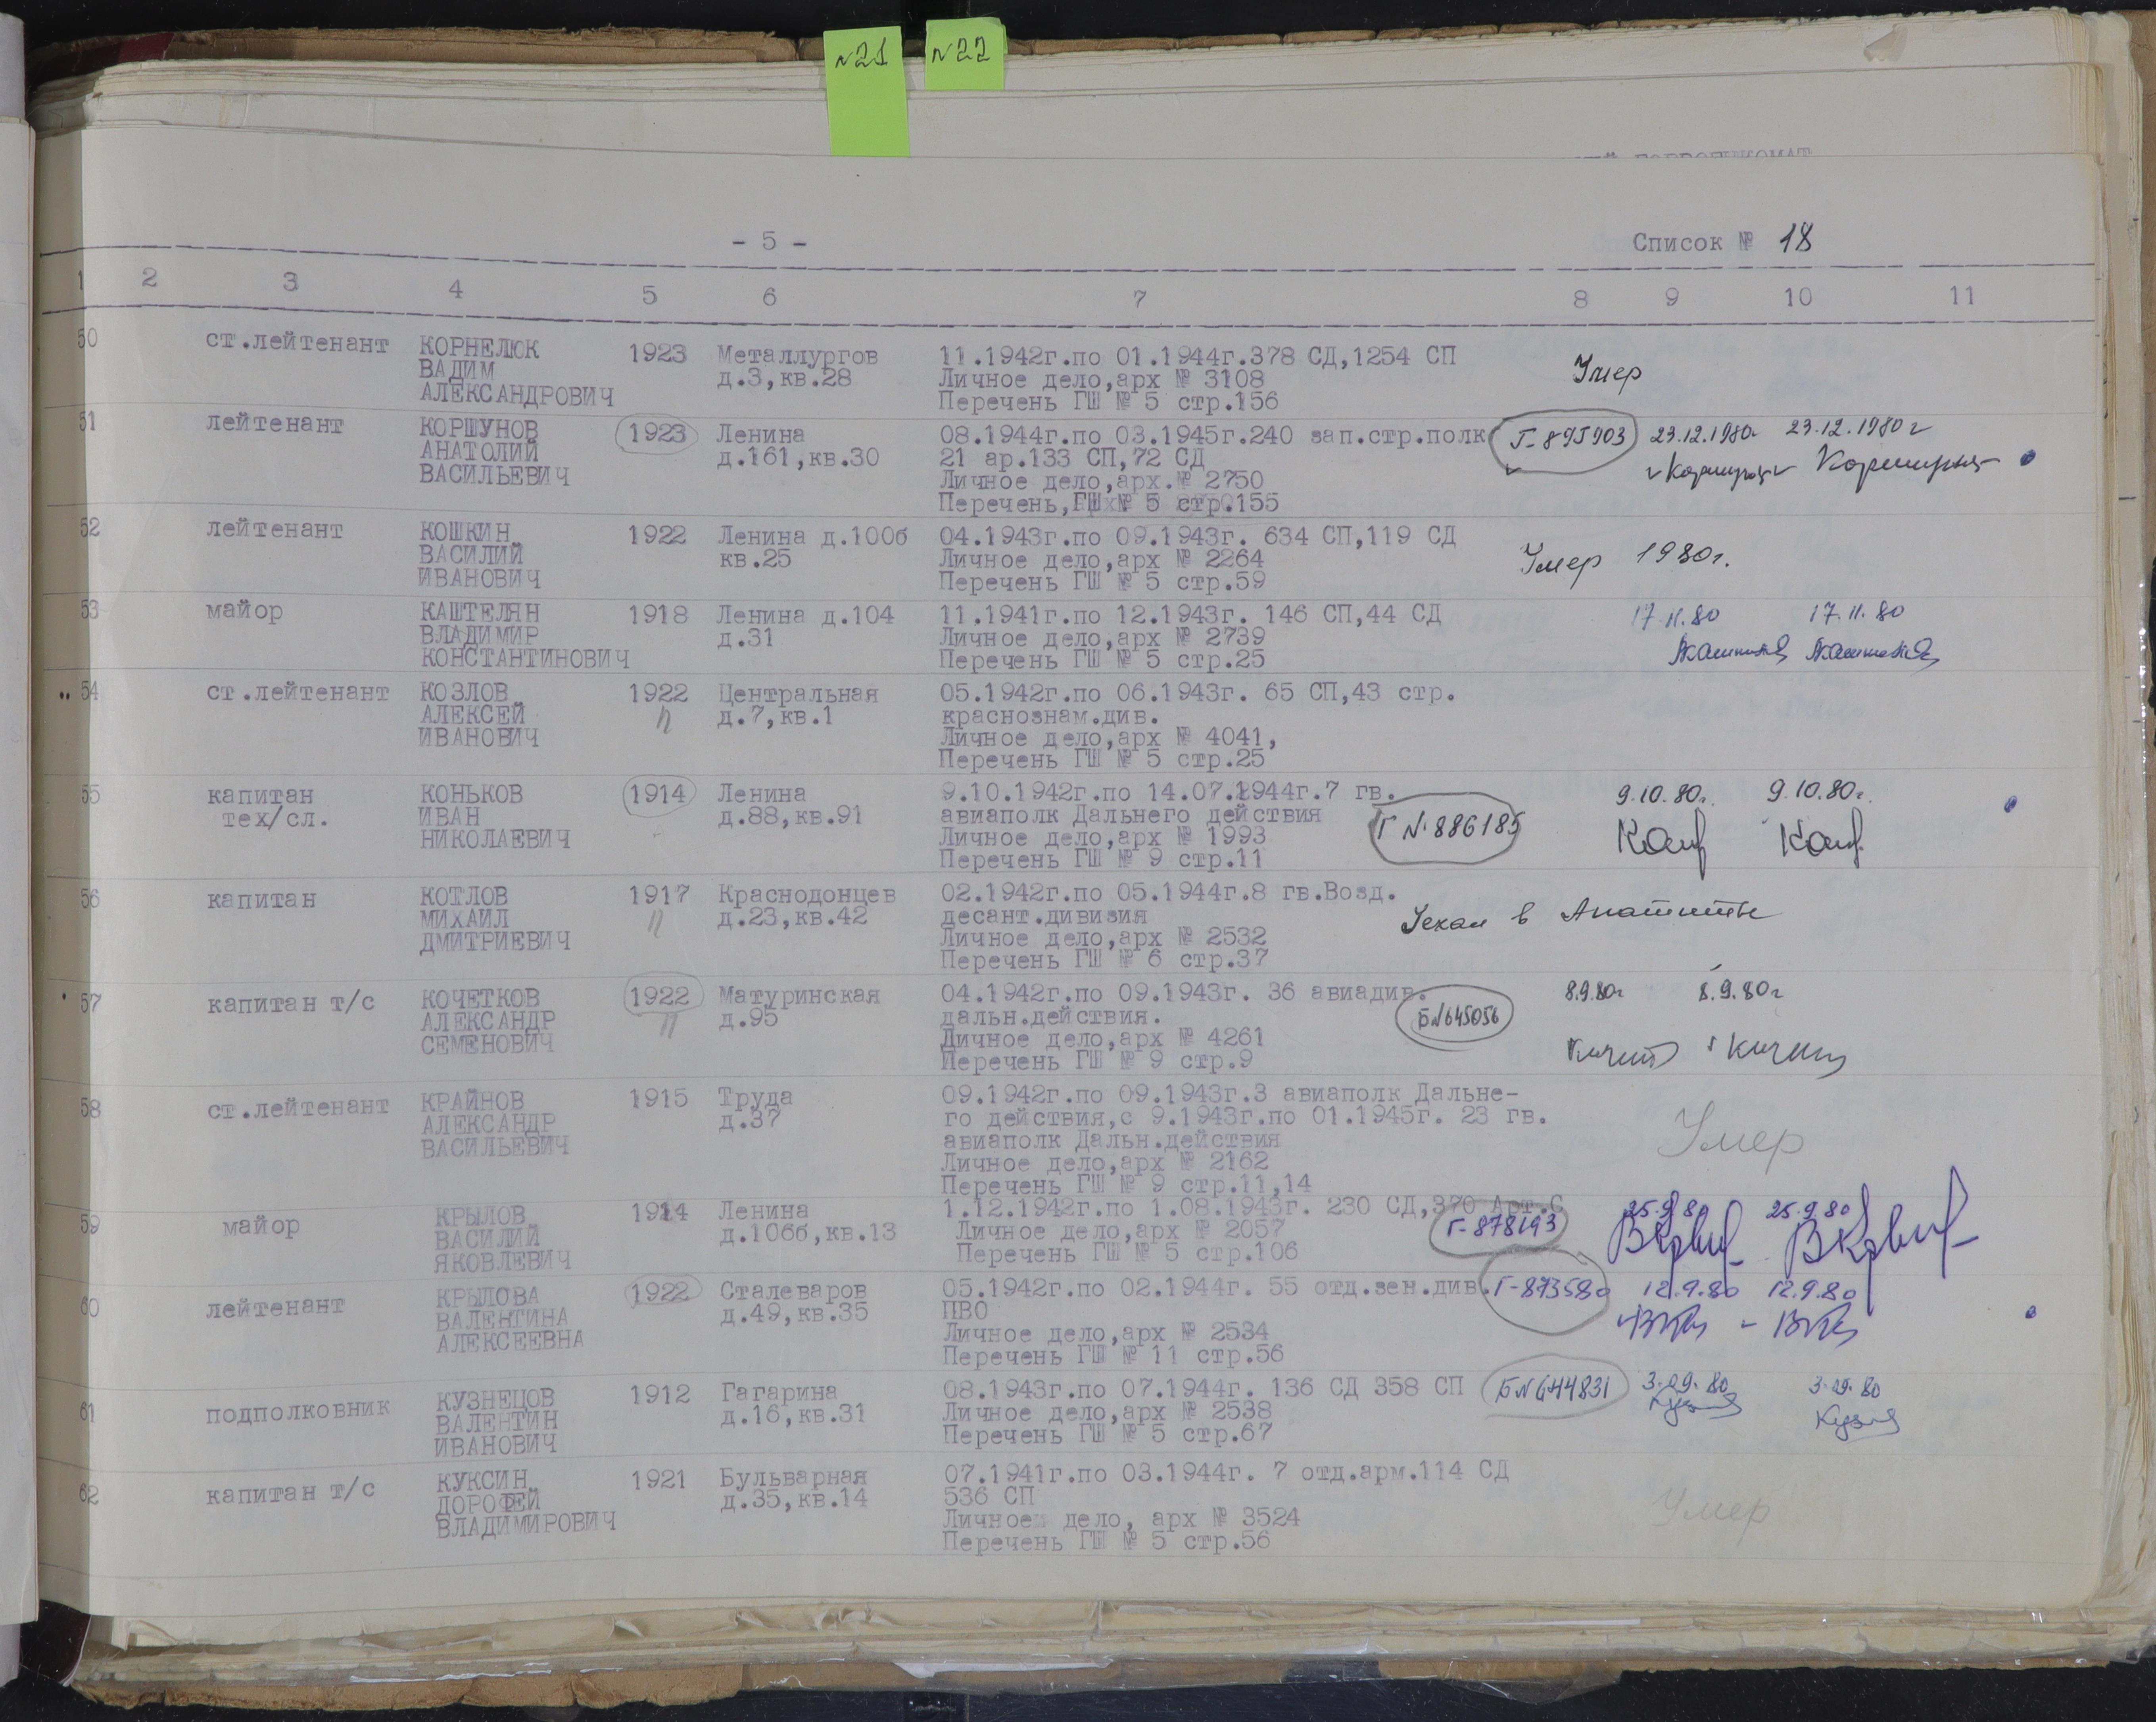 №21 №22
- 5 - Список № 18
1 2 3 4 5 6 7 8 9 10 11
50 ст.лейтенант КОРНЕЛЮК 1923 Металлургов 11.1942г.по 01.1944г.378 СД,1254 СП
ВАДИМ д.3,кв.28 Личное дело,арх № 3108 Умер
АЛЕКСАНДРОВИЧ Перечень ГШ № 5 стр.156
51 лейтенант КОРШУНОВ 1923 Ленина 08.1944г.по 03.1945г.240 зап.стр.полк Г-895903 23.12.1980г 23.12.1980г
АНАТОЛИЙ д.161,кв.30 21 ар.133 СП,72 СД
ВАСИЛЬЕВИЧ Личное дело,арх.№ 2750
Перечень,ГШ № 5 стр.155
52 лейтенант КОШКИН 1922 Ленина д.100б 04.1943г.по 09.1943г. 634 СП,119 СД
ВАСИЛИЙ кв.25 Личное дело,арх № 2264 Умер 1980г.
ИВАНОВИЧ Перечень ГШ № 5 стр.59
53 майор КАШТЕЛЯН 1918 Ленина д.104 11.1941г.по 12.1943г. 146 СП,44 СД 17.11.80 17.11.80
ВЛАДИМИР д.31 Личное дело,арх № 2739
КОНСТАНТИНОВИЧ Перечень ГШ № 5 стр.25
54 ст.лейтенант КОЗЛОВ 1922 Центральная 05.1942г.по 06.1943г. 65 СП,43 стр.
АЛЕКСЕЙ д.7,кв.1 краснознам.див.
ИВАНОВИЧ Личное дело,арх № 4041,
Перечень ГШ № 5 стр.25
55 капитан КОНЬКОВ 1914 Ленина 9.10.1942г.по 14.07.1944г.7 гв. 9.10.80г. 9.10.80г.
тех/сл. ИВАН д.88,кв.91 авиаполк Дальнего действия Г №886185
НИКОЛАЕВИЧ Личное дело,арх № 1993
Перечень ГШ № 9 стр.11
56 капитан КОТЛОВ 1917 Краснодонцев 02.1942г.по 05.1944г.8 гв.Возд.
МИХАИЛ д.23,кв.42 десант.дивизия Уехал в Апатиты
ДМИТРИЕВИЧ Личное дело,арх № 2532
Перечень ГШ № 6 стр.37
57 капитан т/с КОЧЕТКОВ 1922 Матуринская 04.1942г.по 09.1943г. 36 авиадив. 8.9.80г 8.9.80г
АЛЕКСАНДР д.95 дальн.действия. Б№645056
СЕМЕНОВИЧ Личное дело,арх № 4261
Перечень ГШ № 9 стр.9
58 ст.лейтенант КРАЙНОВ 1915 Труда 09.1942г.по 09.1943г.3 авиаполк Дальне-
АЛЕКСАНДР д.37 го действия,с 9.1943г.по 01.1945г. 23 гв.
ВАСИЛЬЕВИЧ авиаполк Дальн.действия Умер
Личное дело,арх № 2162
Перечень ГШ № 9 стр.11,14
59 майор КРЫЛОВ 1914 Ленина 1.12.1942г.по 1.08.1943г. 230 СД,370 Арт.С 25.9.80 25.9.80
ВАСИЛИЙ д.106б,кв.13 Личное дело,арх № 2057 Г-878193
ЯКОВЛЕВИЧ Перечень ГШ № 5 стр.106
60 лейтенант КРЫЛОВА 1922 Сталеваров 05.1942г.по 02.1944г. 55 отд.зен.див. Г-873580 12.9.80 12.9.80
ВАЛЕНТИНА д.49,кв.35 ПВО
АЛЕКСЕЕВНА Личное дело,арх № 2534
Перечень ГШ № 11 стр.56
61 подполковник КУЗНЕЦОВ 1912 Гагарина 08.1943г.по 07.1944г. 136 СД 358 СП Б№644831 3.09.80 3.09.80
ВАЛЕНТИН д.16,кв.31 Личное дело,арх № 2538
ИВАНОВИЧ Перечень ГШ № 5 стр.67
62 капитан т/с КУКСИН 1921 Бульварная 07.1941г.по 03.1944г. 7 отд.арм.114 СД
ДОРОФЕЙ д.35,кв.14 536 СП Умер
ВЛАДИМИРОВИЧ Личное дело, арх № 3524
Перечень ГШ № 5 стр.56